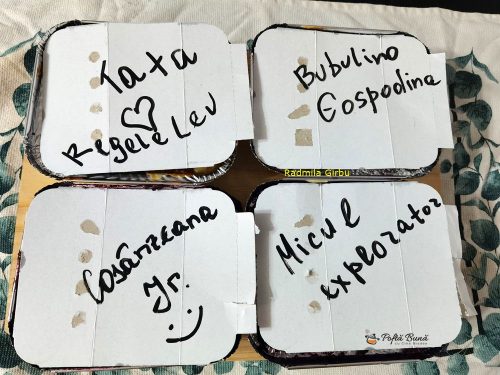 Tata
Regele Leu
Bubulina
Gospodina
Radmila Girbu
Cosânzeana
Jr.
Micul
explorator
Poftă Bună
cu Gina Bradea